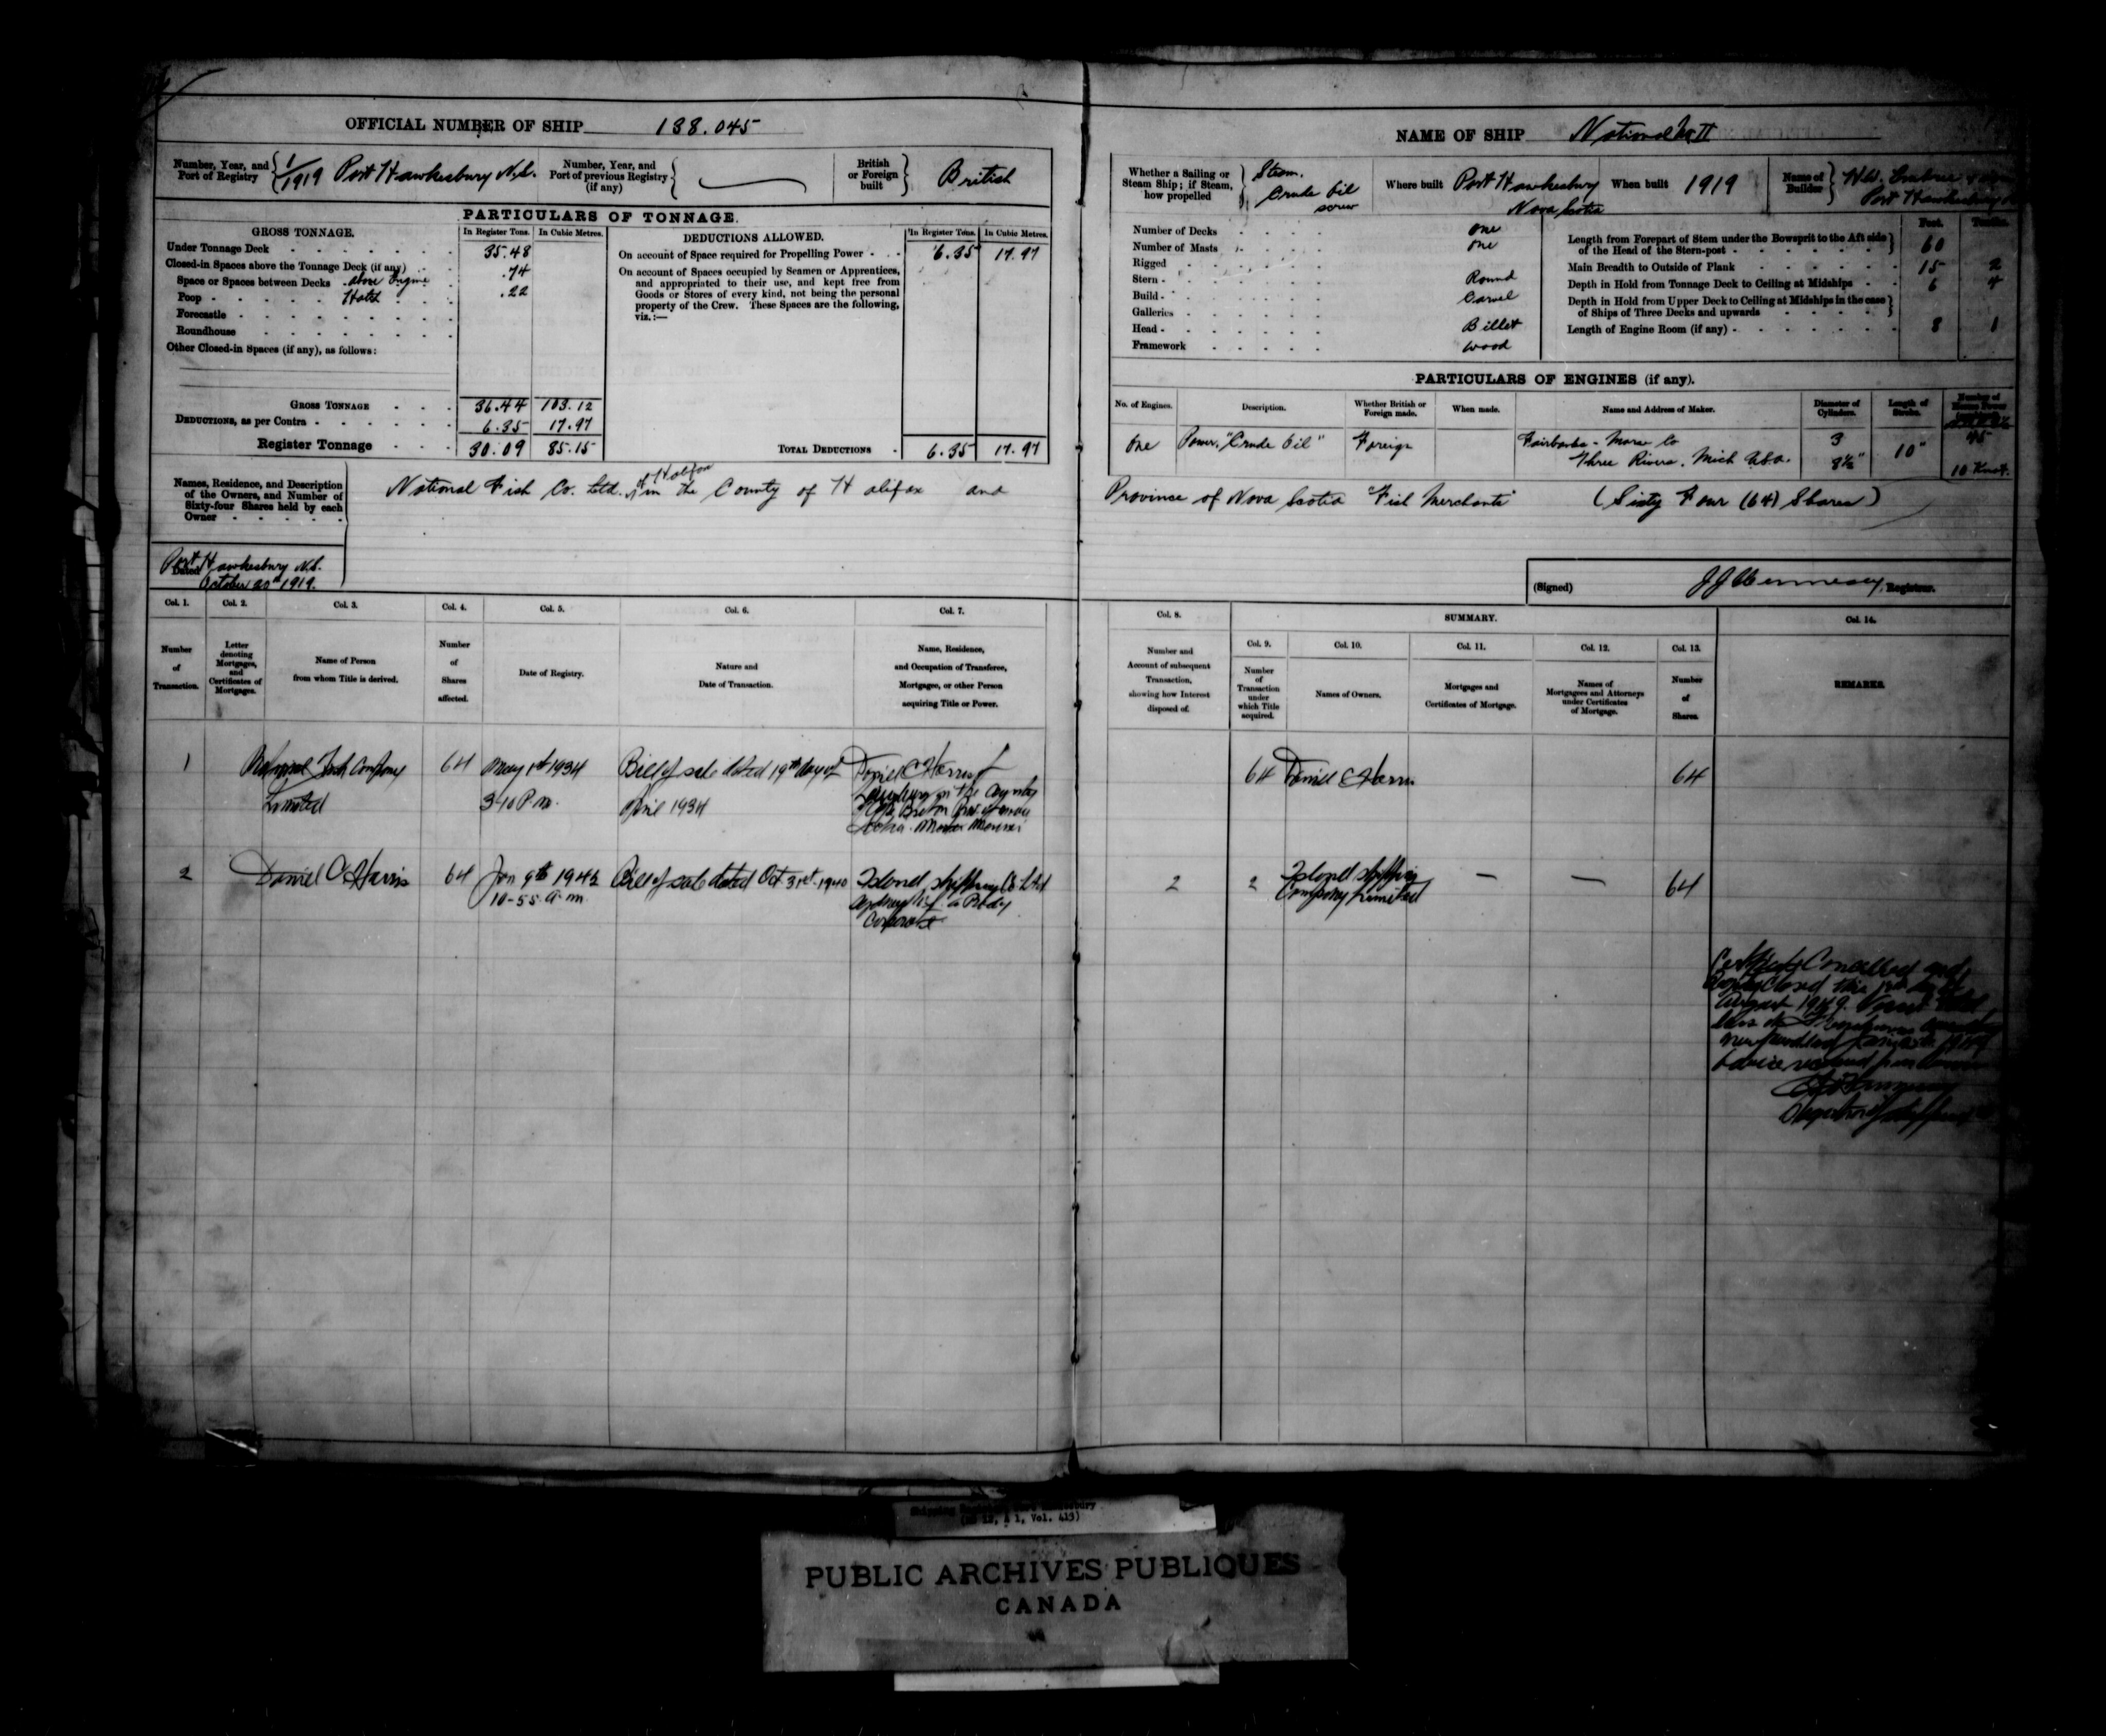 OFFICIAL NUMBER OF SHIP 138.045
Number, Year, and Port of Registry 1/1919 Port Hawkesbury N.S.
Number, Year, and Port of previous Registry (if any)
British or Foreign built British
PARTICULARS OF TONNAGE.
GROSS TONNAGE. In Register Tons. In Cubic Metres.
Under Tonnage Deck 35.48
Closed-in Spaces above the Tonnage Deck (if any) .74
Space or Spaces between Decks above Engine
Poop Hatch .22
Forecastle
Roundhouse
Other Closed-in Spaces (if any), as follows:
GROSS TONNAGE 36.44 103.12
DEDUCTIONS, as per Contra 6.35 17.97
Register Tonnage 30.09 85.15
DEDUCTIONS ALLOWED. In Register Tons. In Cubic Metres.
On account of Space required for Propelling Power 6.35 17.97
On account of Spaces occupied by Seamen or Apprentices,
and appropriated to their use, and kept free from
Goods or Stores of every kind, not being the personal
property of the Crew. These Spaces are the following,
viz.:—
TOTAL DEDUCTIONS 6.35 17.97
NAME OF SHIP National No II
Whether a Sailing or Steam Ship; if Steam, how propelled Steam. Crude Oil screw
Where built Port Hawkesbury Nova Scotia
When built 1919
Name of Builder Port Hawkesbury
Number of Decks One
Number of Masts One
Rigged
Stern Round
Build Carvel
Galleries
Head Billet
Framework Wood
Feet. Tenths.
Length from Forepart of Stem under the Bowsprit to the Aft side of the Head of the Stern-post 60
Main Breadth to Outside of Plank 15 2
Depth in Hold from Tonnage Deck to Ceiling at Midships 6 4
Depth in Hold from Upper Deck to Ceiling at Midships in the case of Ships of Three Decks and upwards
Length of Engine Room (if any) 8 1
PARTICULARS OF ENGINES (if any).
No. of Engines. Description. Whether British or Foreign made. When made. Name and Address of Maker. Diameter of Cylinders. Length of Stroke. Number of
One Power. "Crude Oil" Foreign Fairbanks-Morse Co 3 10" 45
Three Rivers. Mich U.S.A. 8½" 10 Knots.
Names, Residence, and Description
of the Owners, and Number of
Sixty-four Shares held by each
Owner
National Fish Co. Ltd. of Halifax in the County of Halifax and Province of Nova Scotia "Fish Merchants" (Sixty Four (64) Shares)
Dated Port Hawkesbury N.S.
October 1919.
(Signed) Registrar.
Col. 1. Col. 2. Col. 3. Col. 4. Col. 5. Col. 6. Col. 7.
Number of Transaction.
Letter denoting Mortgages, and Certificates of Mortgages.
Name of Person from whom Title is derived.
Number of Shares affected.
Date of Registry.
Nature and Date of Transaction.
Name, Residence, and Occupation of Transferee, Mortgagee, or other Person acquiring Title or Power.
Col. 8. SUMMARY. Col. 14.
Number and Account of subsequent Transaction, showing how Interest disposed of.
Col. 9. Col. 10. Col. 11. Col. 12. Col. 13.
Number of Transaction under which Title acquired.
Names of Owners.
Mortgages and Certificates of Mortgage.
Names of Mortgagees and Attorneys under Certificates of Mortgage.
Number of Shares.
REMARKS.
1 National Fish Company 64 May 1st 1934 Bill of sale dated 19th day of Daniel C Harris of 64 Daniel C Harris 64
Limited 3-10 P.m. April 1934
2 Daniel C Harris 64 Jan 9th 1942 Bill of sale dated Oct 31st 1940 Island Shipping Co Ltd 2 2 Island Shipping — — 64
10-55 a.m. a Body Company Limited
Corporate
Cancelled and
closed this
August 1949. Vessel
PUBLIC ARCHIVES PUBLIQUES
CANADA